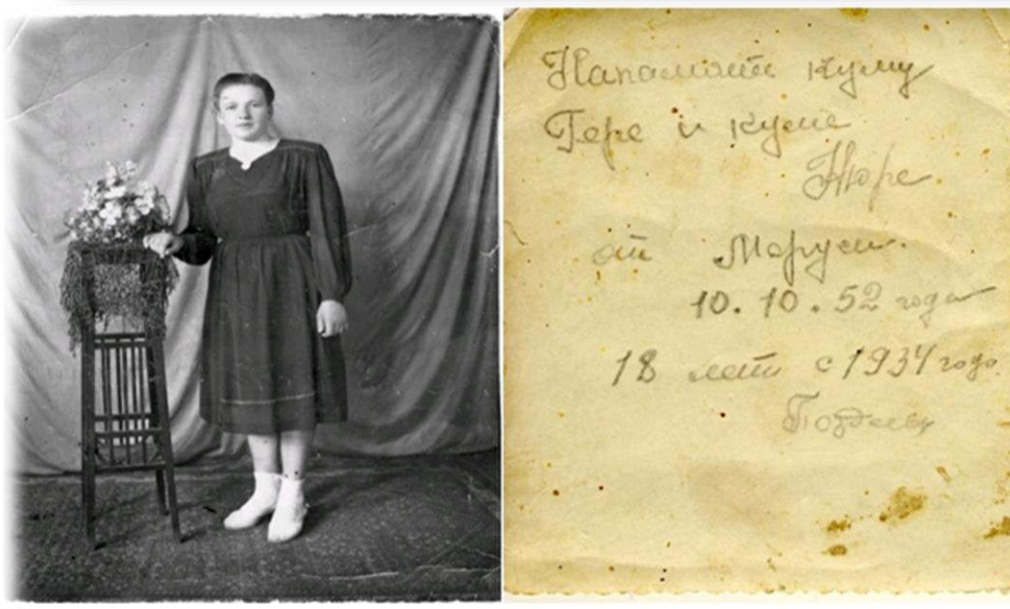 Напомять куму
Гере и куме
Нюре
от Маруси.
10.10.52 года
18 лет с 1934 года.